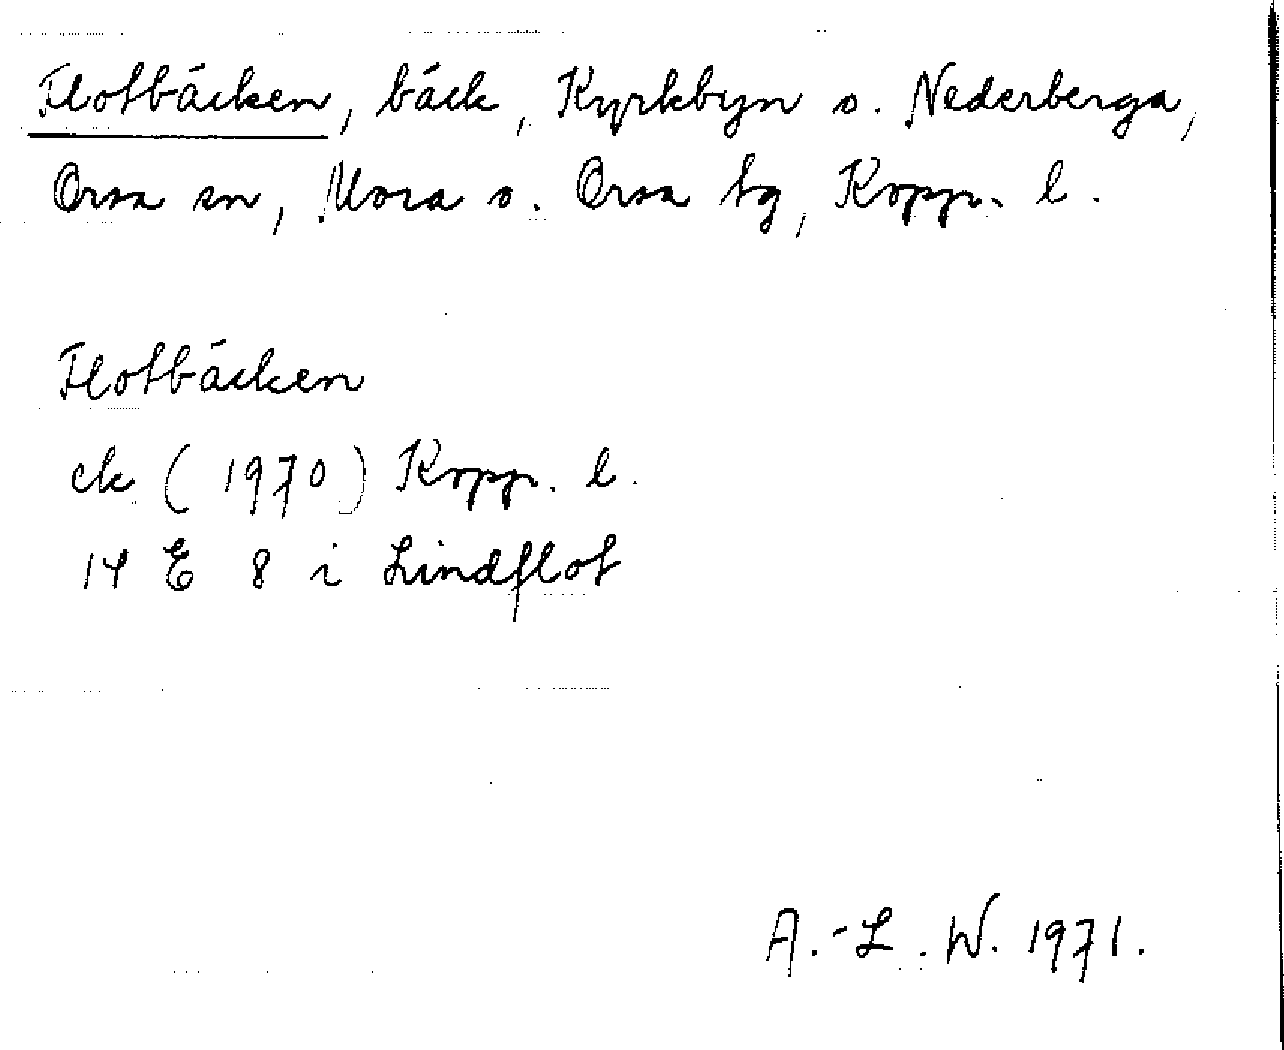 Flotbäcken, bäck, Kyrkbyn o. Nederberga,
Orsa sn, Mora o. Orsa tg, Kopp. l.
Flotbäcken
ek (1970) Kopp. l.
14 E 8 i Lindflot
A.-L. W. 1971.